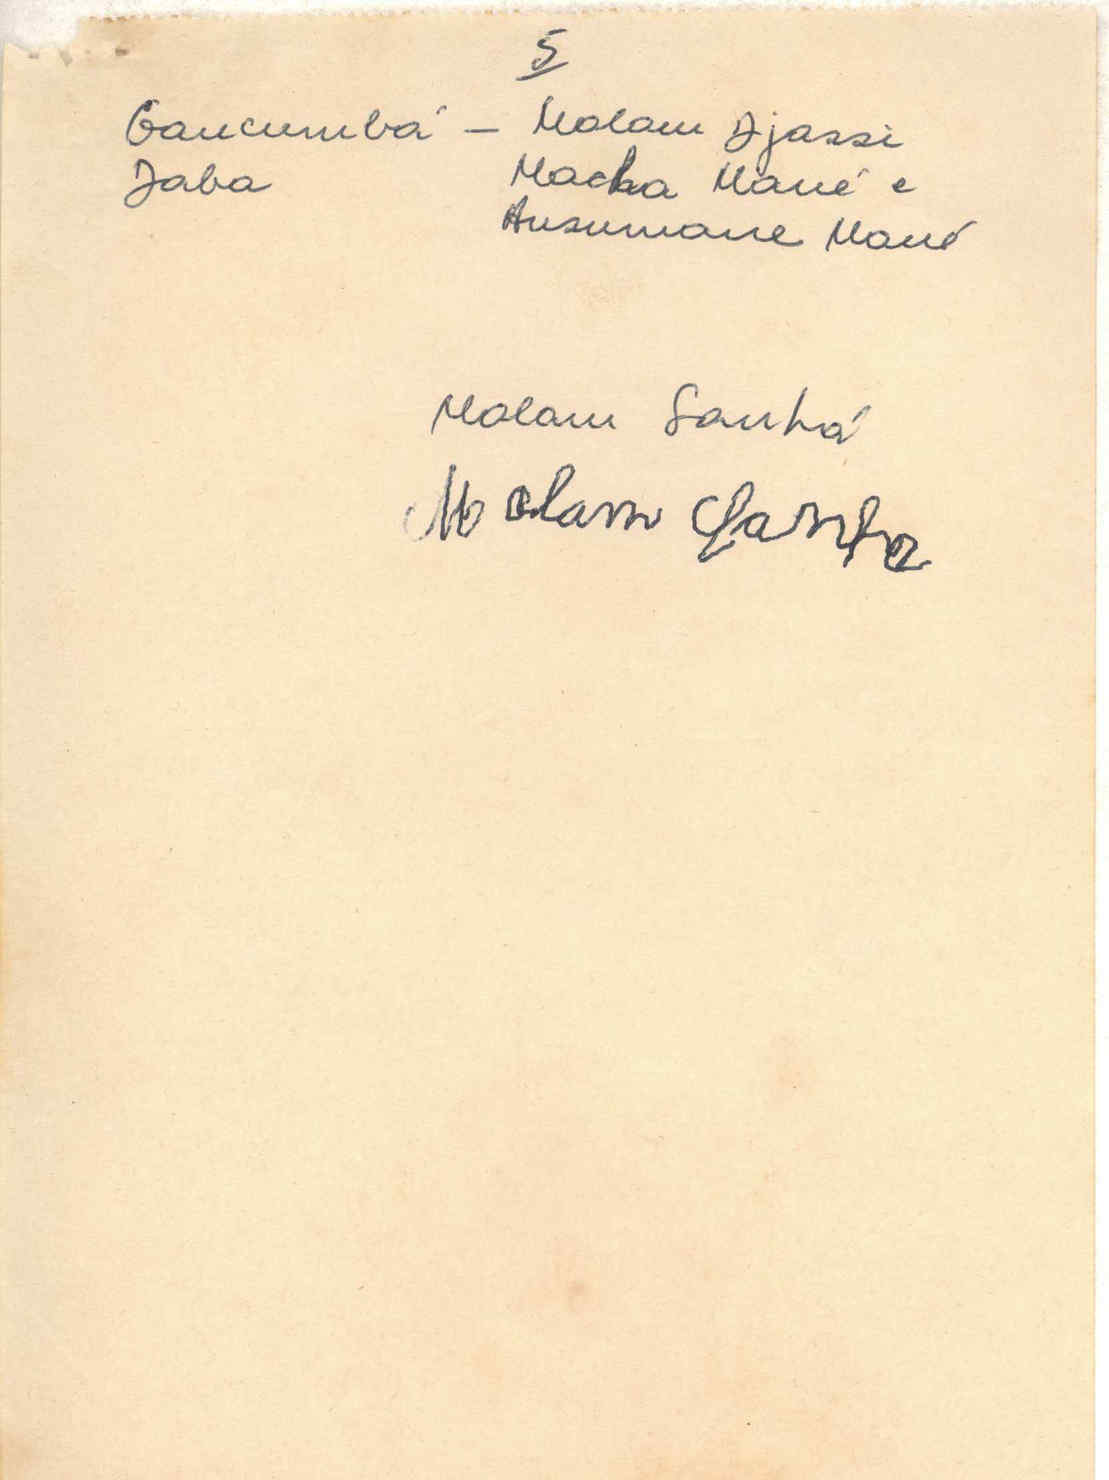 5
Gancumbá – Malam Djassi
Jaba Macka Mané e
Ansumane Mané
Malam Sanhá
Malam Sanha